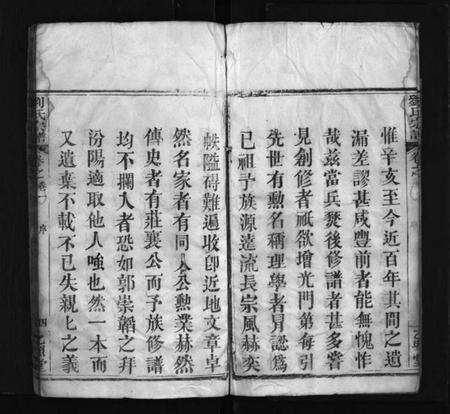 惟辛亥至今近百年其間之遺
漏差謬甚咸豐前者能無愧怍
哉茲當兵燹後修譜者甚多嘗
見創修者祇欲增光門第每引
先世有勳名稱理學者冐認爲
已祖予族源遠流長宗風赫奕
帙隘碍難遍收卽近地文章卓
然名家者有同人公勲業赫然
傳史者有莊襄公而予族修譜
均不攔入者恐如郭崇韜之拜
汾陽適取他人嗤也然一本而
又遺棄不載不已失親上之義
劉氏
序
四